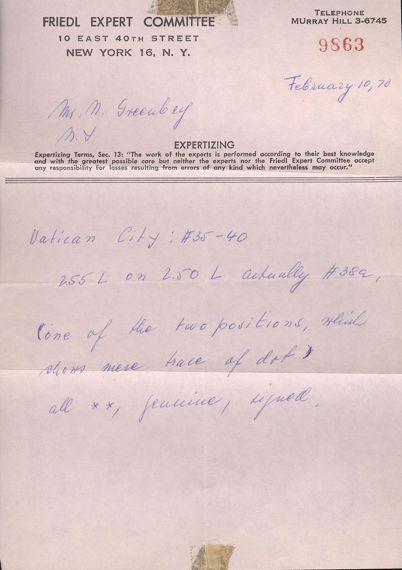 FRIEDL EXPERT COMMITTEE
10 EAST 40TH STREET
NEW YORK 16, N. Y.
TELEPHONE
MURRAY HILL 3-6745
9863
February 10, 70
Mr. N. Greenberg
N.Y
EXPERTIZING
Expertizing Terms, Sec. 13: "The work of the experts is performed according to their best knowledge
and with the greatest possible care but neither the experts nor the Friedl Expert Committee accept
any responsibility for losses resulting from errors of any kind which nevertheless may occur."
Vatican City: #35-40
2.55 L on 2.50 L actually #38a,
(one of the two positions, which
shows mere trace of dot)
all **, genuine, signed.